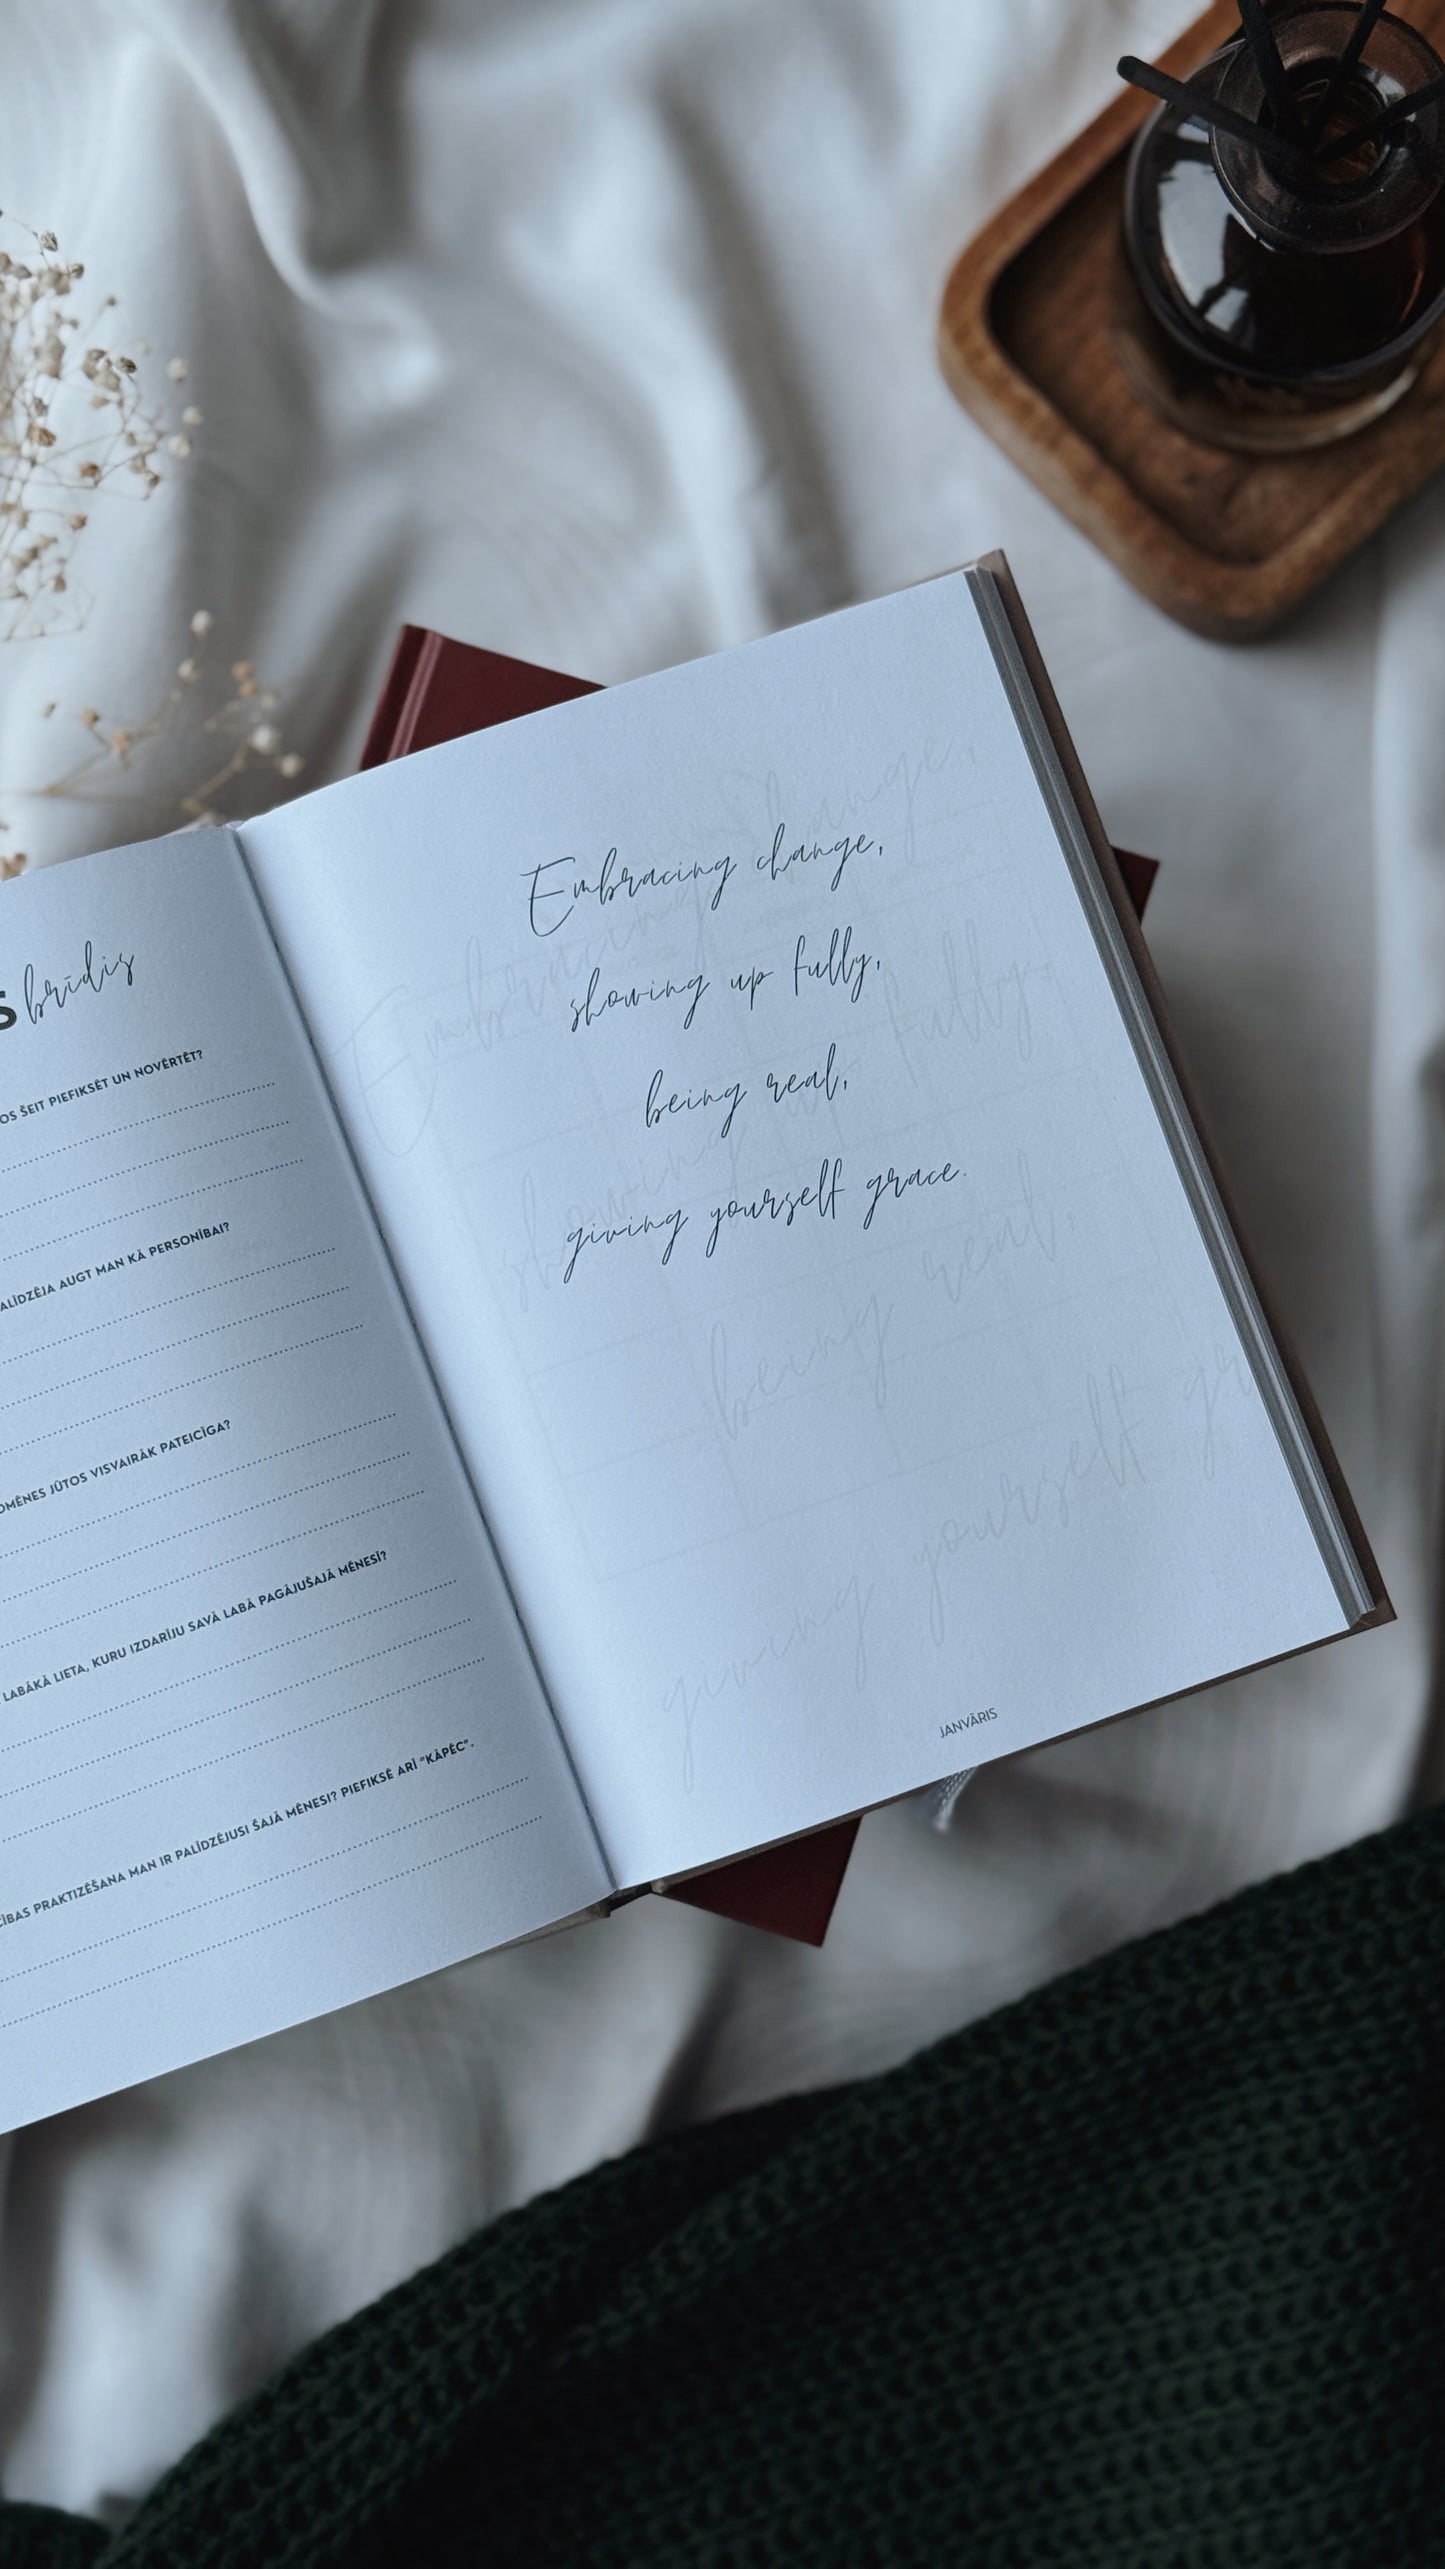 brīdis
ŠEIT PIEFIKSĒT UN NOVĒRTĒT?
AUGT MAN KĀ PERSONĪBAI?
JŪTOS VISVAIRĀK PATEICĪGA?
LABĀKĀ LIETA, KURU IZDARĪJU SAVĀ LABĀ PAGĀJUŠAJĀ MĒNESĪ?
PRAKTIZĒŠANA MAN IR PALĪDZĒJUSI ŠAJĀ MĒNESĪ? PIEFIKSĒ ARĪ "KĀPĒC".
Embracing change,
showing up fully,
being real,
giving yourself grace.
Embracing change,
showing up fully,
being real,
giving yourself gr
JANVĀRIS